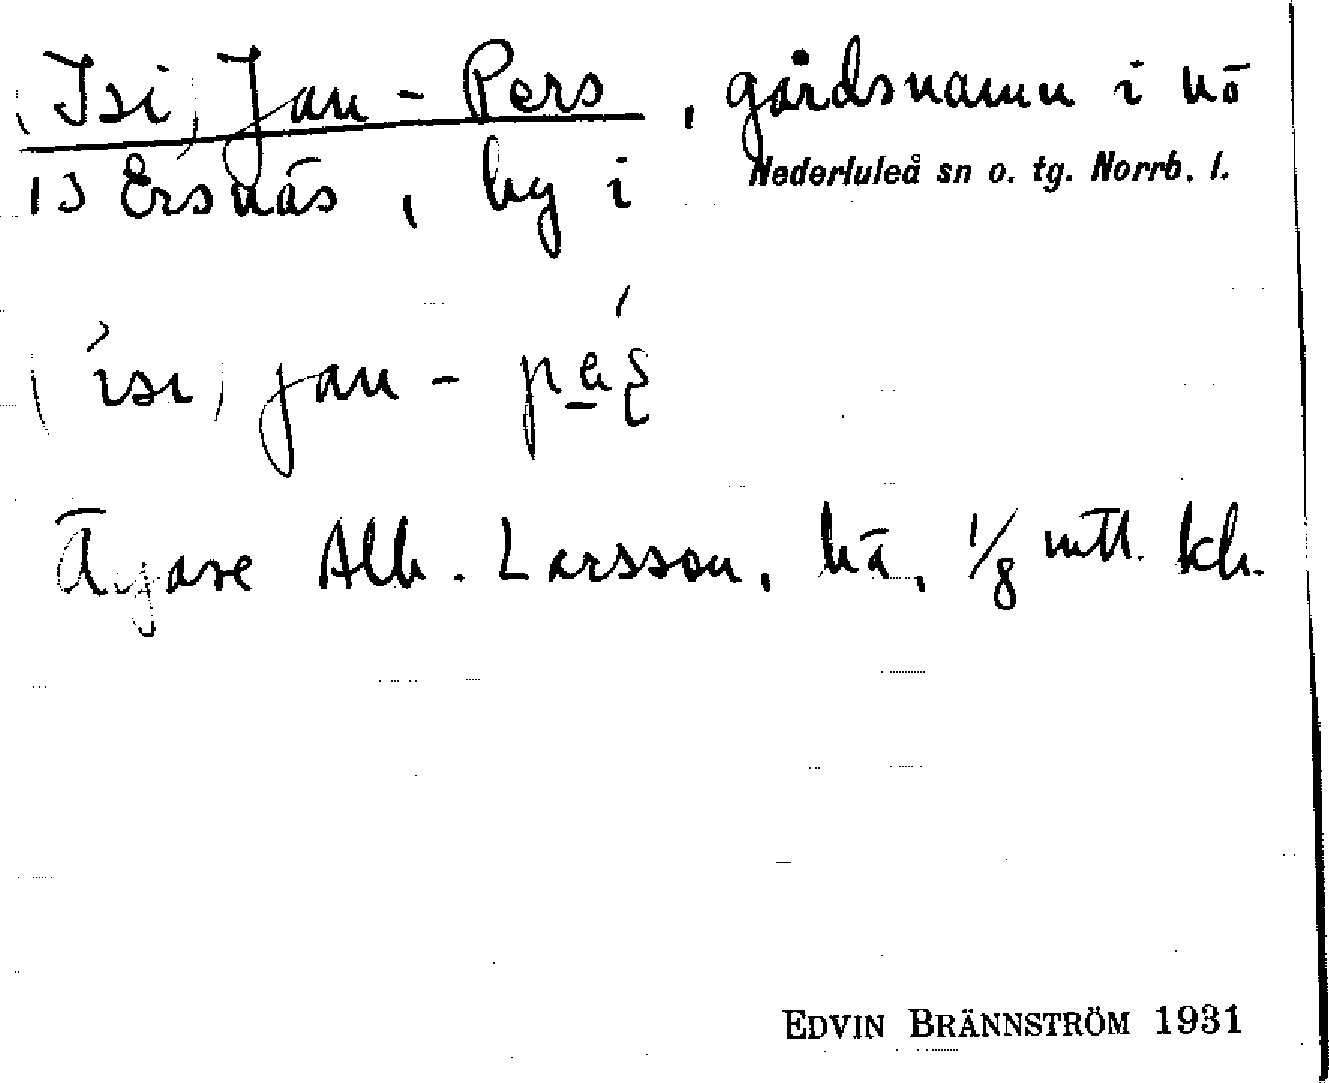 (Isi) Jan-Pers, gårdsnamn i nö
13 Ersnäs, by i Nederluleå sn o. tg. Norrb. l.
(isi) jan-
Ägare Alb. Larsson, hä, 1/8 mtl. kh.
EDVIN BRÄNNSTRÖM 1931